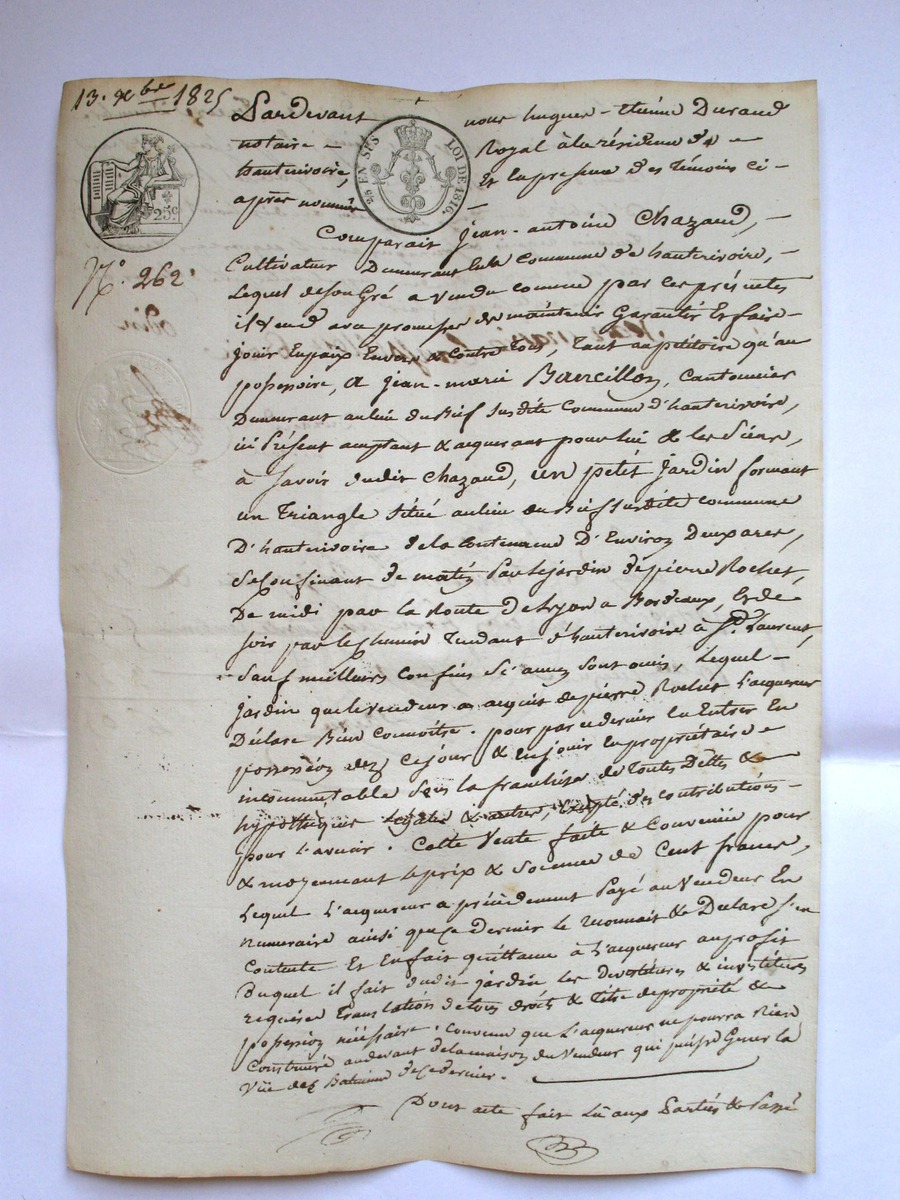 13. xbre 1825
Pardevant nous hugues-étiène Durand
notaire - Royal à la résidence d' -
hauterivoire, Et En presence des Témoins ci-
après nommés -
25 EN SUS LOI DE 1816.
25c
N.° 262.
Comparait Jean-antoine Chazaud, -
Cultivateur Demeurant En la Commune d'hauterivoire, -
Lequel de son Gré a Vendu comme par ces présentes
il Vend avec promesse de maintenir Garantir Et faire -
jouir En paix Envers & contre tous, tant au petitoire qu'au
possessoire, a jean-marie Barcillon, Cantonnier
Demeurant au lieu du Bief susdite Commune d'hauterivoire,
ici Présent acceptant & acquerant pour lui & les Siens,
à Savoir dudit Chazaud, un petit jardin formant
un Triangle Situé au lieu du Bief susdite commune
D'hauterivoire de la Contenance D'Environ Deux ares,
Se Confinant de matin Par le jardin de pierre Rochet,
De midi par la Route de Lyon a Bordeaux, & de
soir par le Chemin Tendant d'hauterivoire à St. Laurent,
Sauf meilleurs confins Si aucuns sont omis, Lequel -
jardin que le vendeur a acquis de pierre Rochet L'acquereur
Déclare Bien Connoitre. pour par ce dernier En Entrer En
possession dez Ce jour & En jouir En propriétaire
incommutable Sous la franchise de Toutes Dettes &
hypothèques Légales & autres, Excepté des contributions -
pour l'avenir. Cette Vente faite & Convenue pour
& moyennant le prix & Somme de Cent francs,
Lequel L'acquereur a précédemment Payé au Vendeur En
numeraire ainsi que Ce dernier le reconnait & Déclare s'en
Contente Et En fait quittance à L'acquereur au profit
Duquel il fait dudit jardin, les devestitures & investitures
requises Translation de tous droits & titre de propriété &
possession nécessaire. Convenu que L'acquereur ne pourra Rien
Construire au devant de la maison du Vendeur qui puisse Gener la
Vüe des Batimens de Ce dernier.
Dont acte fait Lû aux Parties & Passé